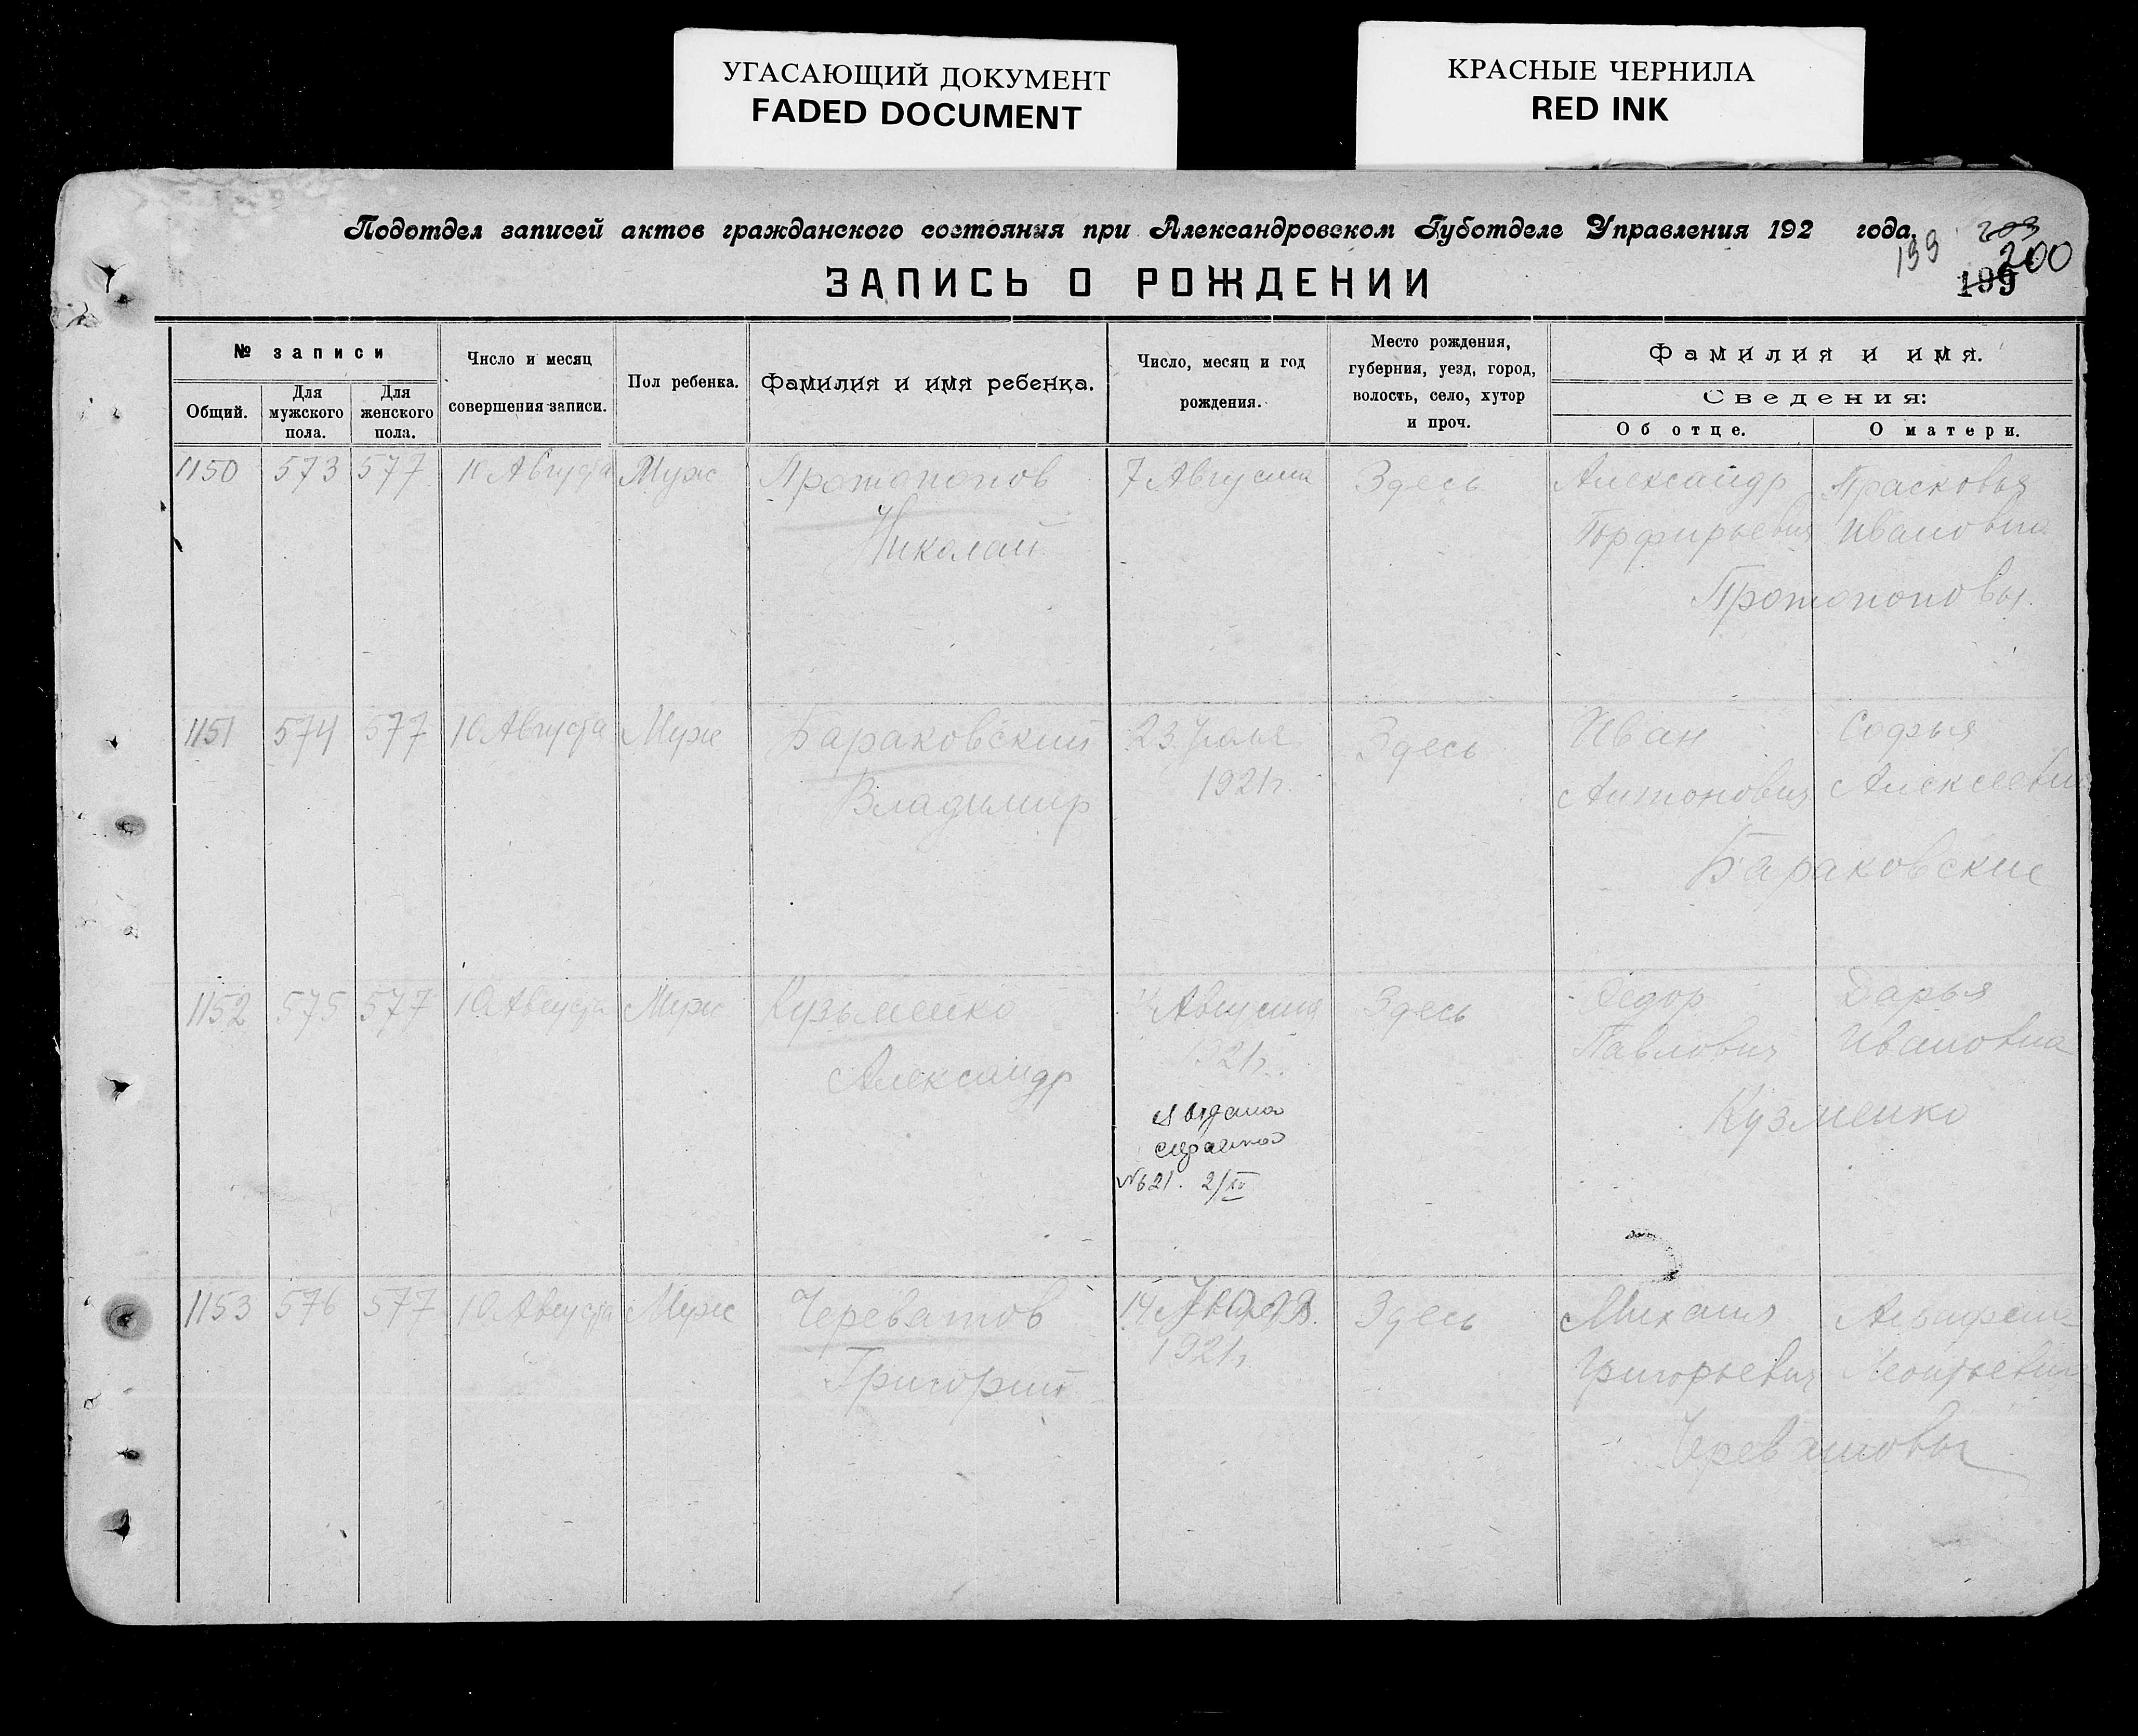 УГАСАЮЩИЙ ДОКУМЕНТ
FADED DOCUMENT
КРАСНЫЕ ЧЕРНИЛА
RED INK
Подотдел записей актов гражданского состояния при Александровском Губотделе Управления 192 года.
199 203
200
199
ЗАПИСЬ О РОЖДЕНИИ
№ записи
Общий.
Для мужского пола.
Для женского пола.
Число и месяц
совершения записи.
Пол ребенка.
Фамилия и имя ребенка.
Число, месяц и год
рождения.
Место рождения,
губерния, уезд, город,
волость, село, хутор
и проч.
Фамилия и имя.
Сведения:
Об отце.
О матери.
1150 573 577 10 Августа Муж Протопопов 7 Августа Здесь Александр Прасковья
Николай Порфирьевич Ивановна
Протопоповы.
1151 574 577 10 Августа Муж Бараковский 23 Июля Здесь Иван Софья
1921г. Антонович Алексеевн
Владимир
Бараковские
1152 575 577 10 Августа Муж Кузьменко Августа Здесь Федор Дарья
1921г. Павлович Ивановна
Александр
Кузменко
Выдана
справка
№621. 2/
1153 576 577 10 Августа Муж Череватов 14 Здесь Михаил
1921г. Григорьевич Леонтьевн
Григорий
Череватовы